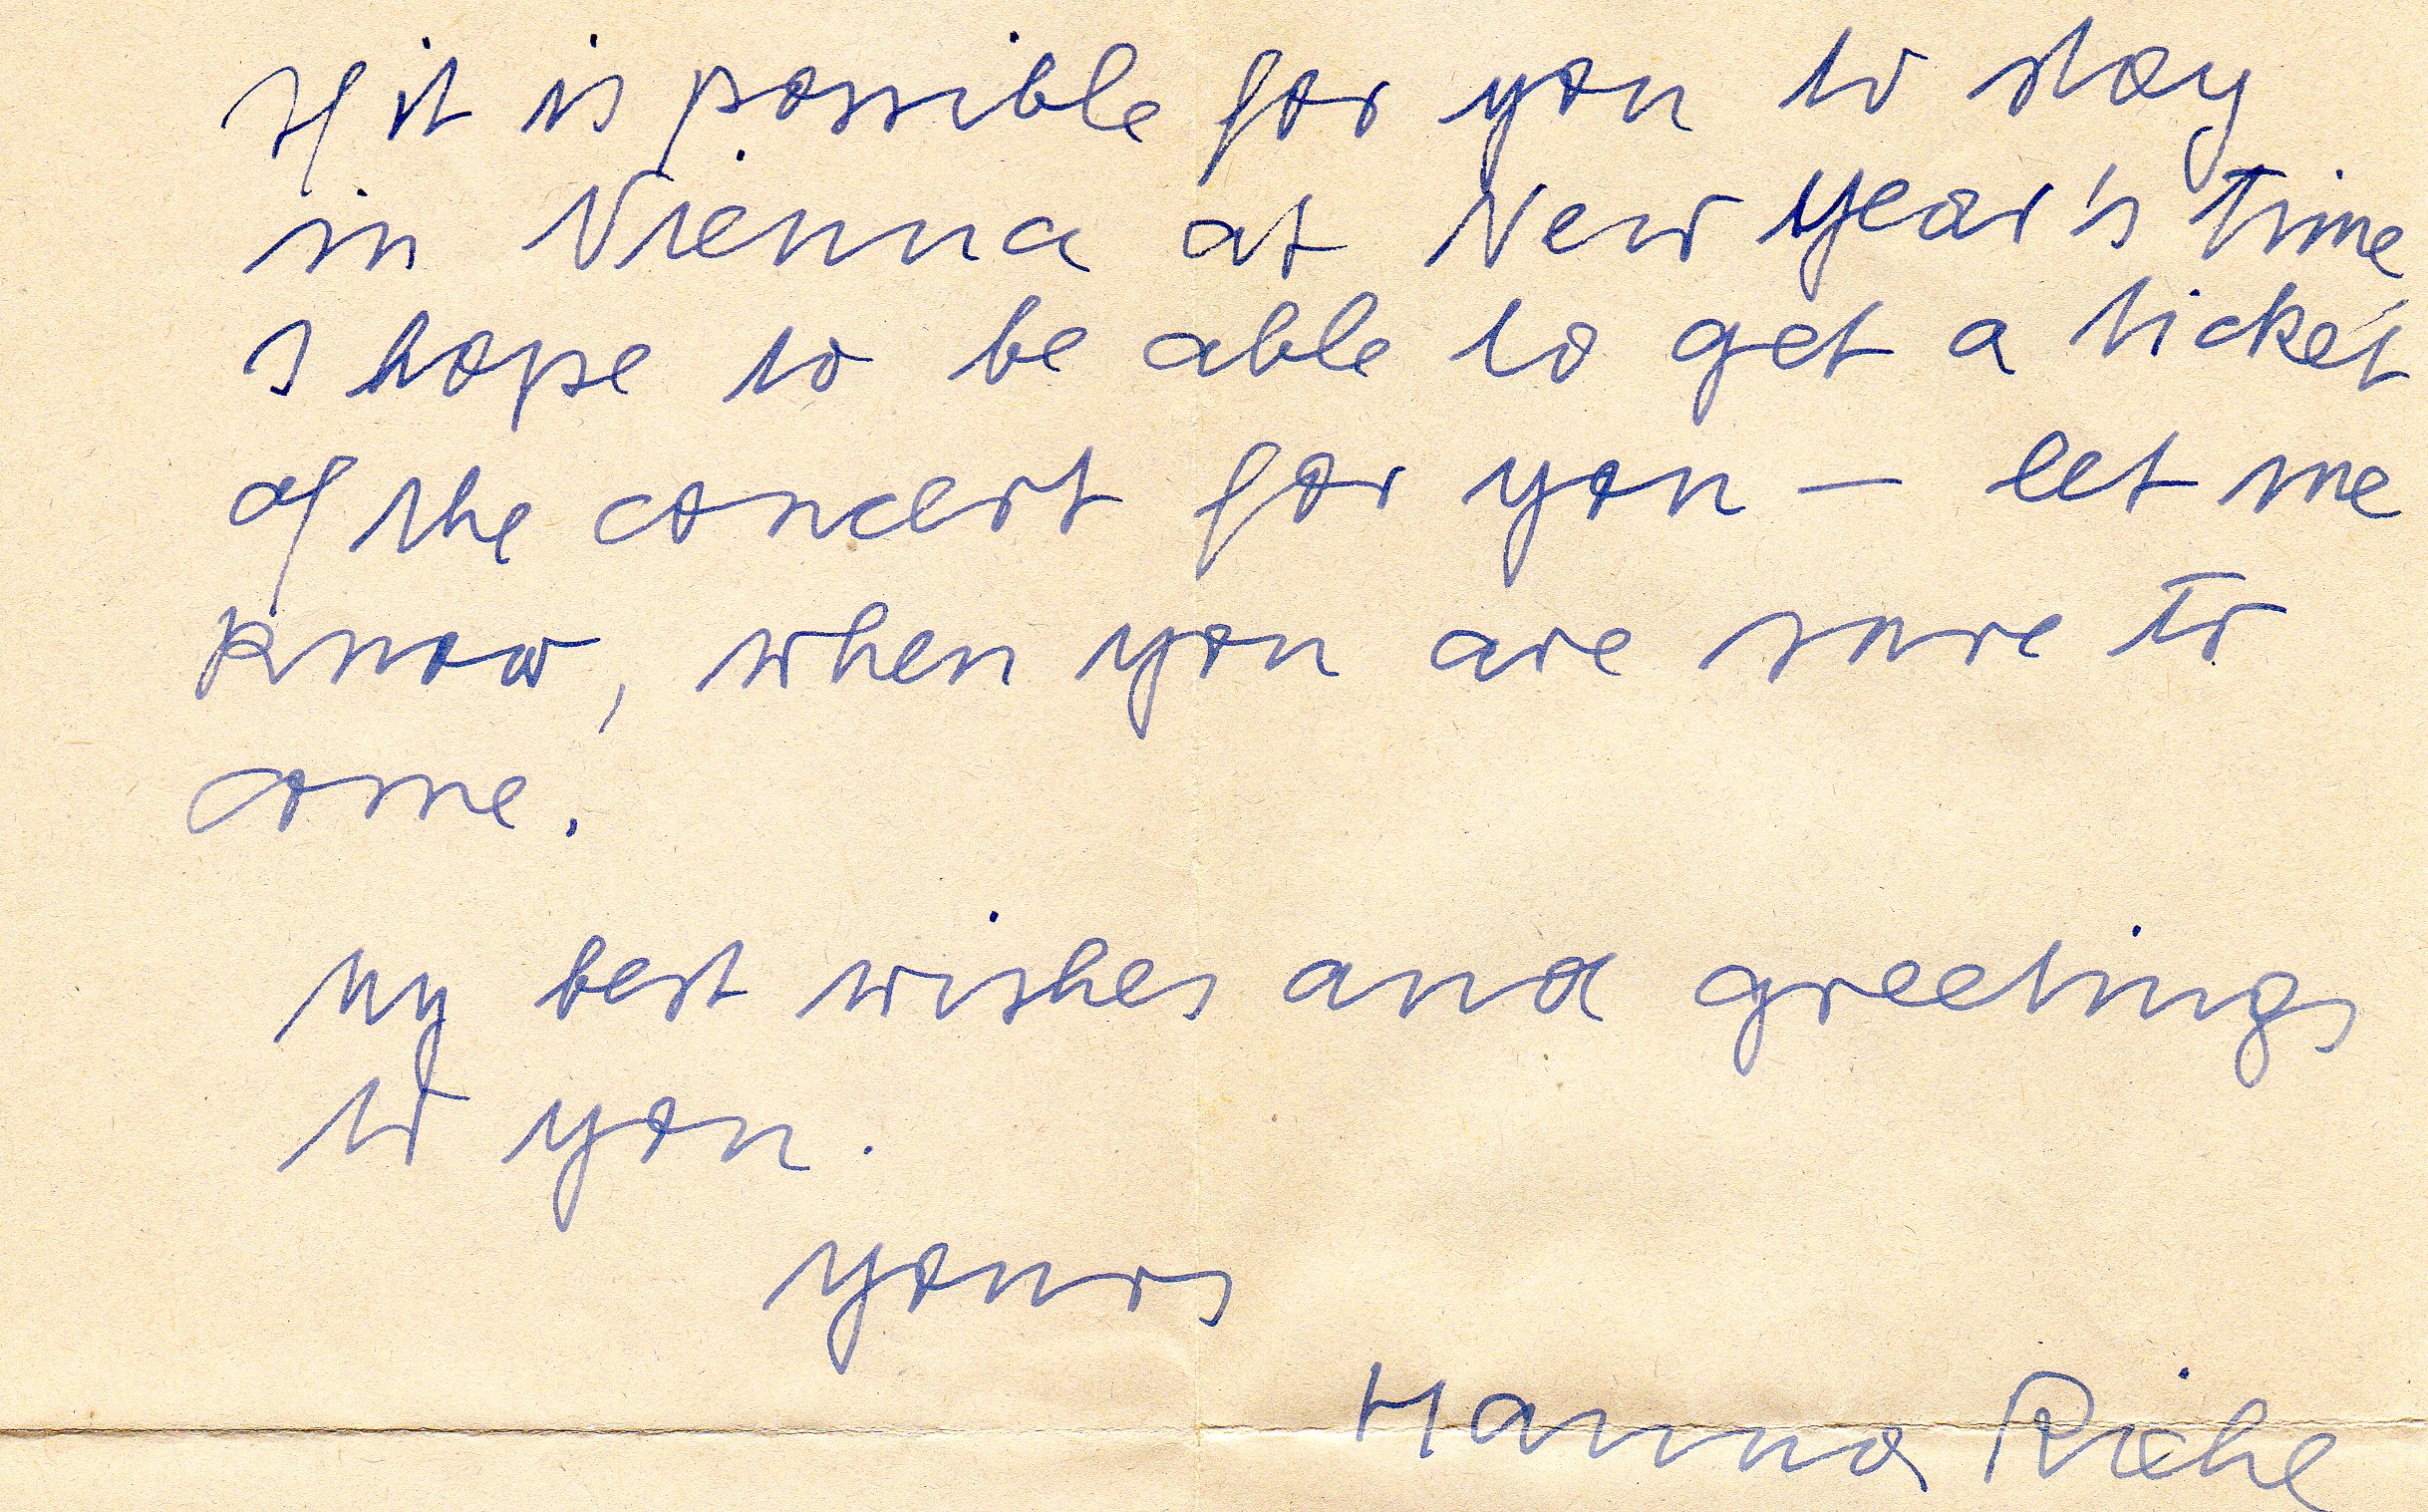 If it is possible for you to stay
in Vienna at New Year's Time
I hope to be able to get a ticket
of the concert for you — let me
know, when you are sure to
come.
My best wishes and greetings
to you.
Yours
Hanna Riehl